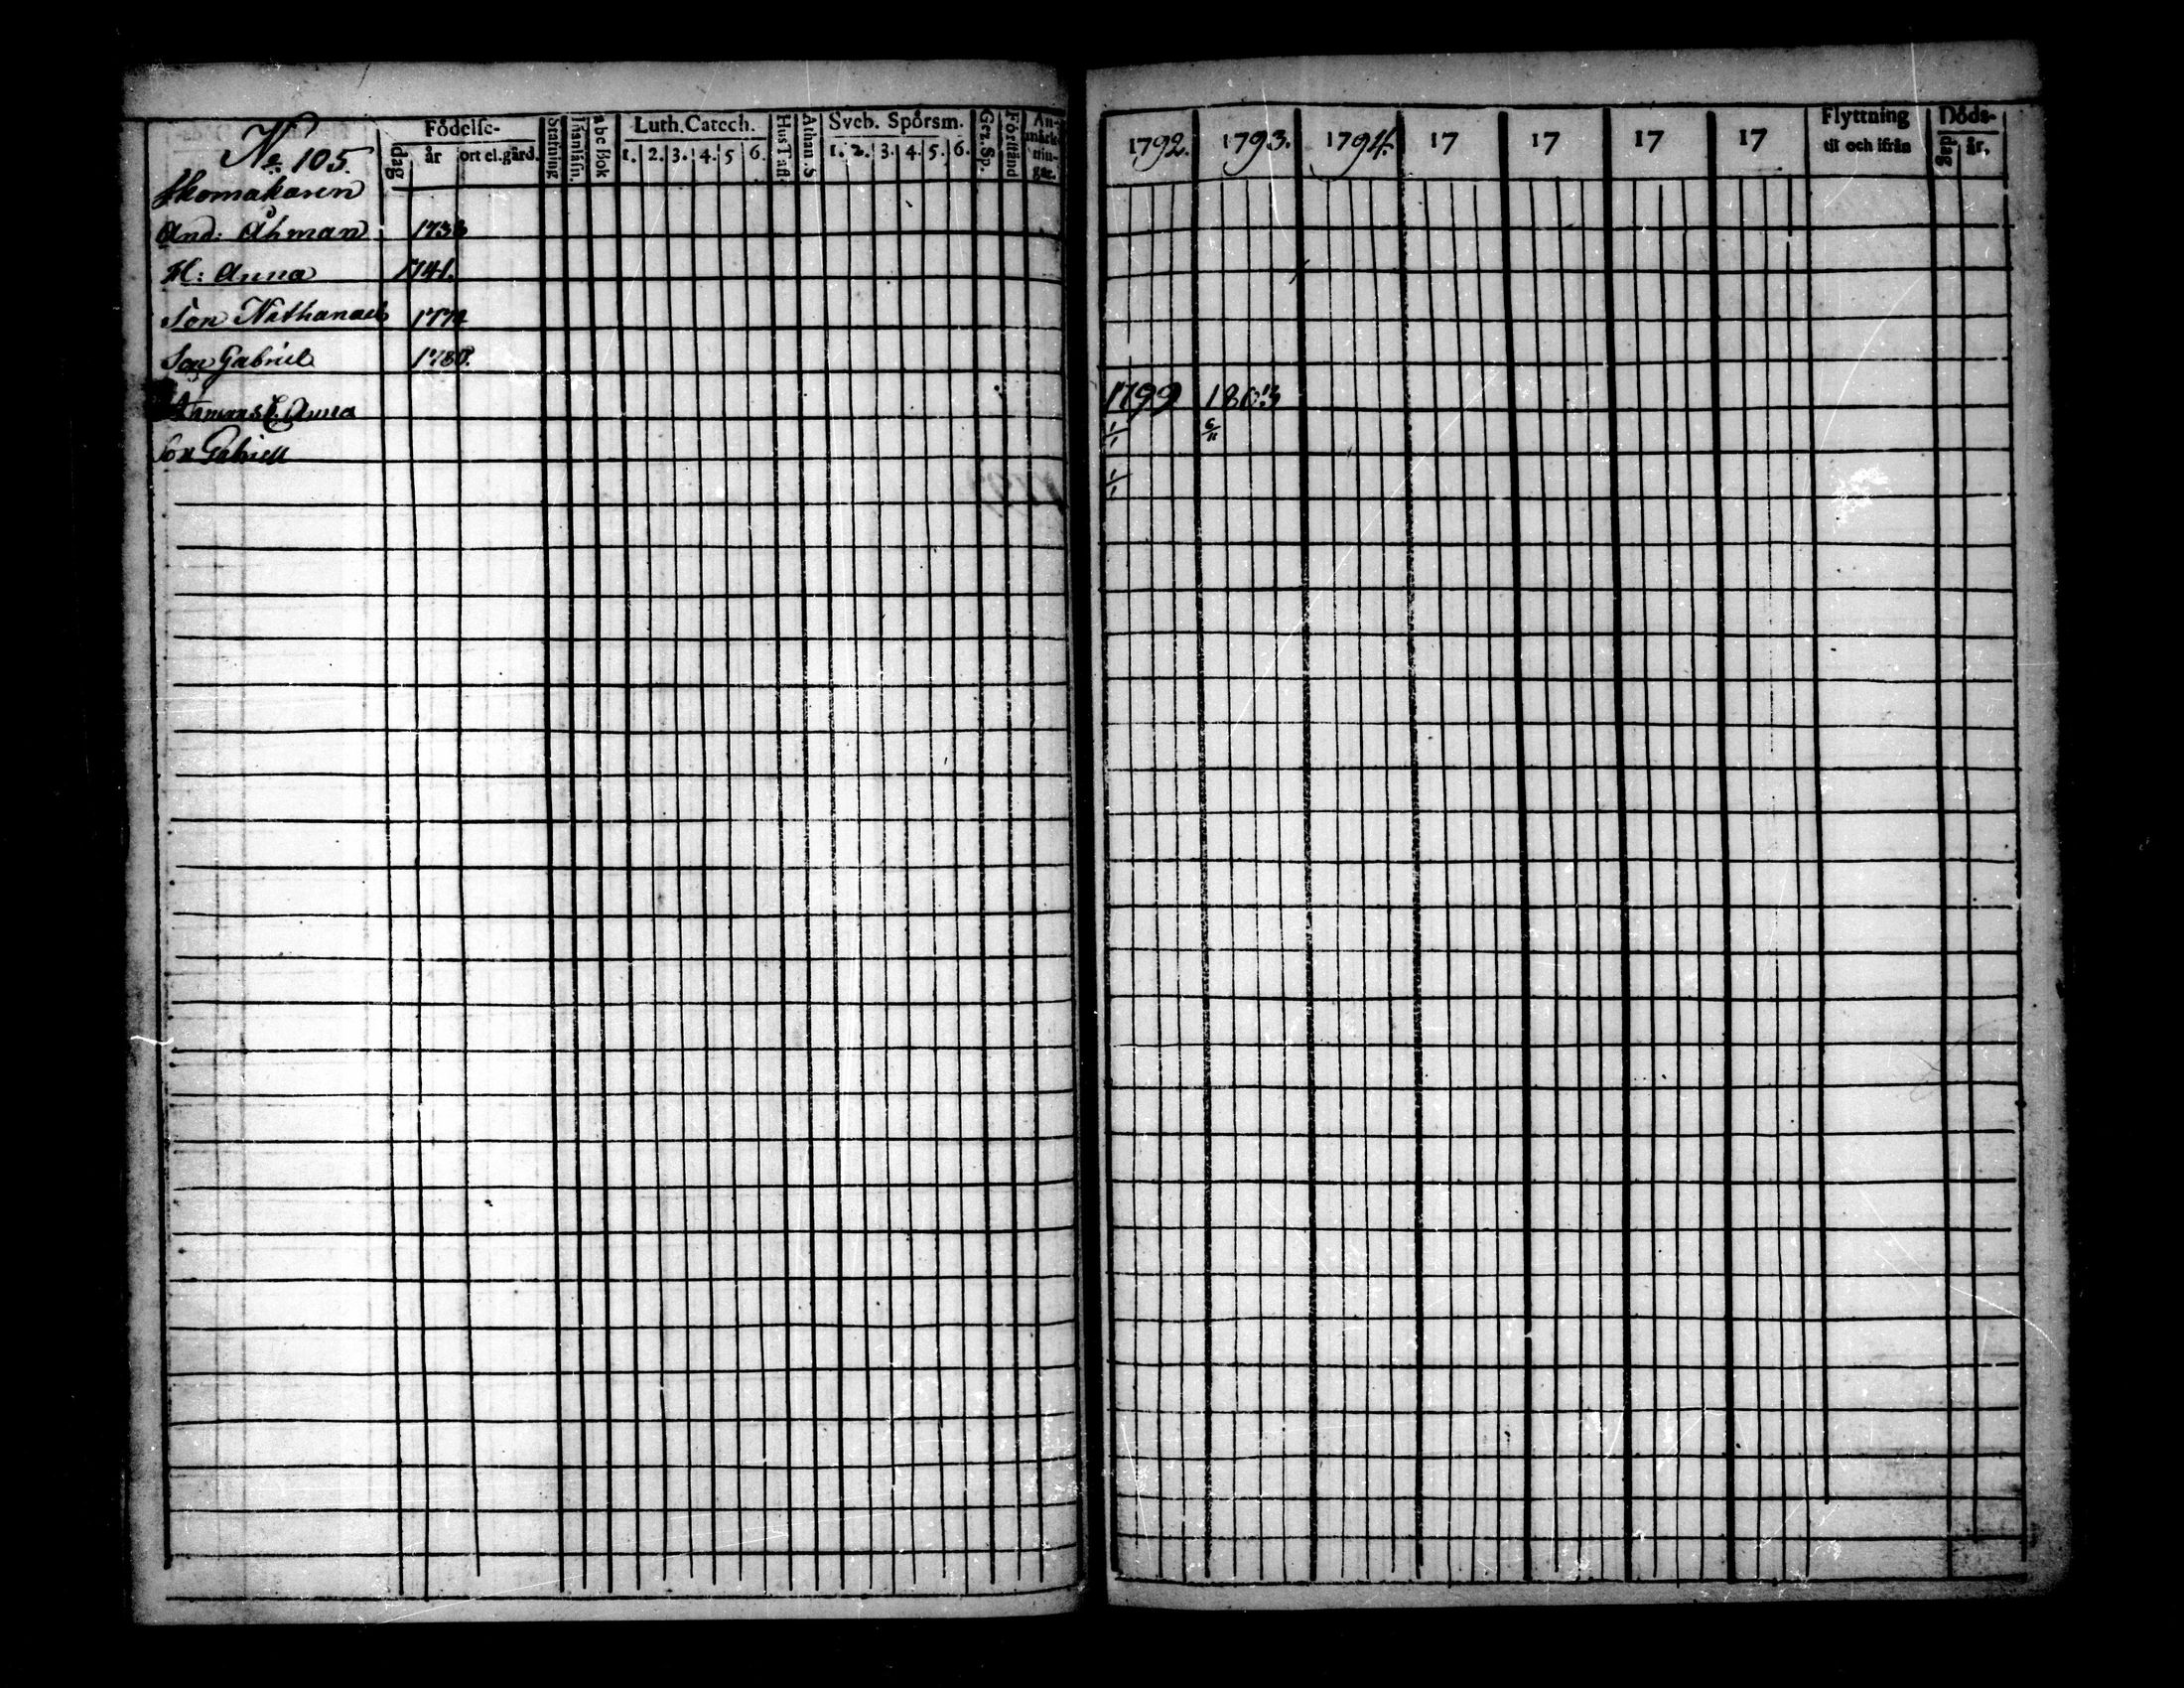 No 105.
Födelse-
dag
år
ort el. gård.
Stafning
Innanläsn.
abc Bok
Luth. Catech.
1. 2. 3. 4. 5 6.
Hus Tafl.
Athan. S
Sveb. Spörsm.
1. 2. 3. 4. 5. 6.
Ger. Sp.
Förstånd
An-
märk-
nin-
gar.
1792. 1793. 1794. 17 17 17 17
Flyttning
til och ifrån
Döds-
dag
år.
Skomakaren
And: Åhman 1738
H: Anna 1741.
Son Nathanael 1774
Son Gabriel 1780.
Anna 1799 1803
1/1 6/11
Son Gabriell
1/1